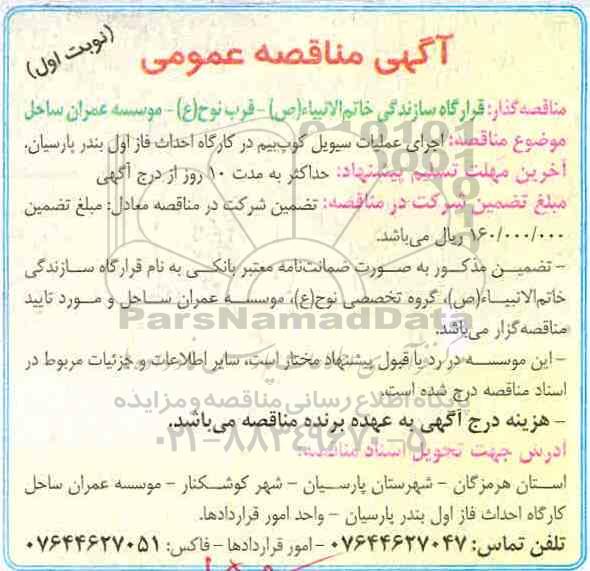 (نوبت اول)
آگهی مناقصه عمومی
مناقصه گذار: قرارگاه سازندگی خاتم‌الانبیاء(ص) - قرب نوح(ع) - موسسه عمران ساحل
موضوع مناقصه: اجرای عملیات سیویل کوپ‌بیم در کارگاه احداث فاز اول بندر پارسیان.
آخرین مهلت تسلیم پیشنهاد: حداکثر به مدت ۱۰ روز از درج آگهی
مبلغ تضمین شرکت در مناقصه: تضمین شرکت در مناقصه معادل: مبلغ تضمین
۱۶۰/۰۰۰/۰۰۰ ریال می‌باشد.
- تضمین مذکور به صورت ضمانت‌نامه معتبر بانکی به نام قرارگاه سازندگی
خاتم‌الانبیاء(ص)، گروه تخصصی نوح(ع)، موسسه عمران ساحل و مورد تایید
ParsNamadData
مناقصه‌گزار می‌باشد.
- این موسسه در رد یا قبول پیشنهاد مختار است، سایر اطلاعات و جزئیات مربوط در
اسناد مناقصه درج شده است.
پایگاه اطلاع رسانی مناقصه و مزایده
- هزینه درج آگهی به عهده برنده مناقصه می‌باشد.
۰۲۱-۸۸۳۴۹۶۷۰-۵
آدرس جهت تحویل اسناد مناقصه:
استان هرمزگان - شهرستان پارسیان - شهر کوشکنار - موسسه عمران ساحل
کارگاه احداث فاز اول بندر پارسیان - واحد امور قراردادها.
تلفن تماس: ۰۷۶۴۴۶۲۷۰۴۷ - امور قراردادها - فاکس: ۰۷۶۴۴۶۲۷۰۵۱